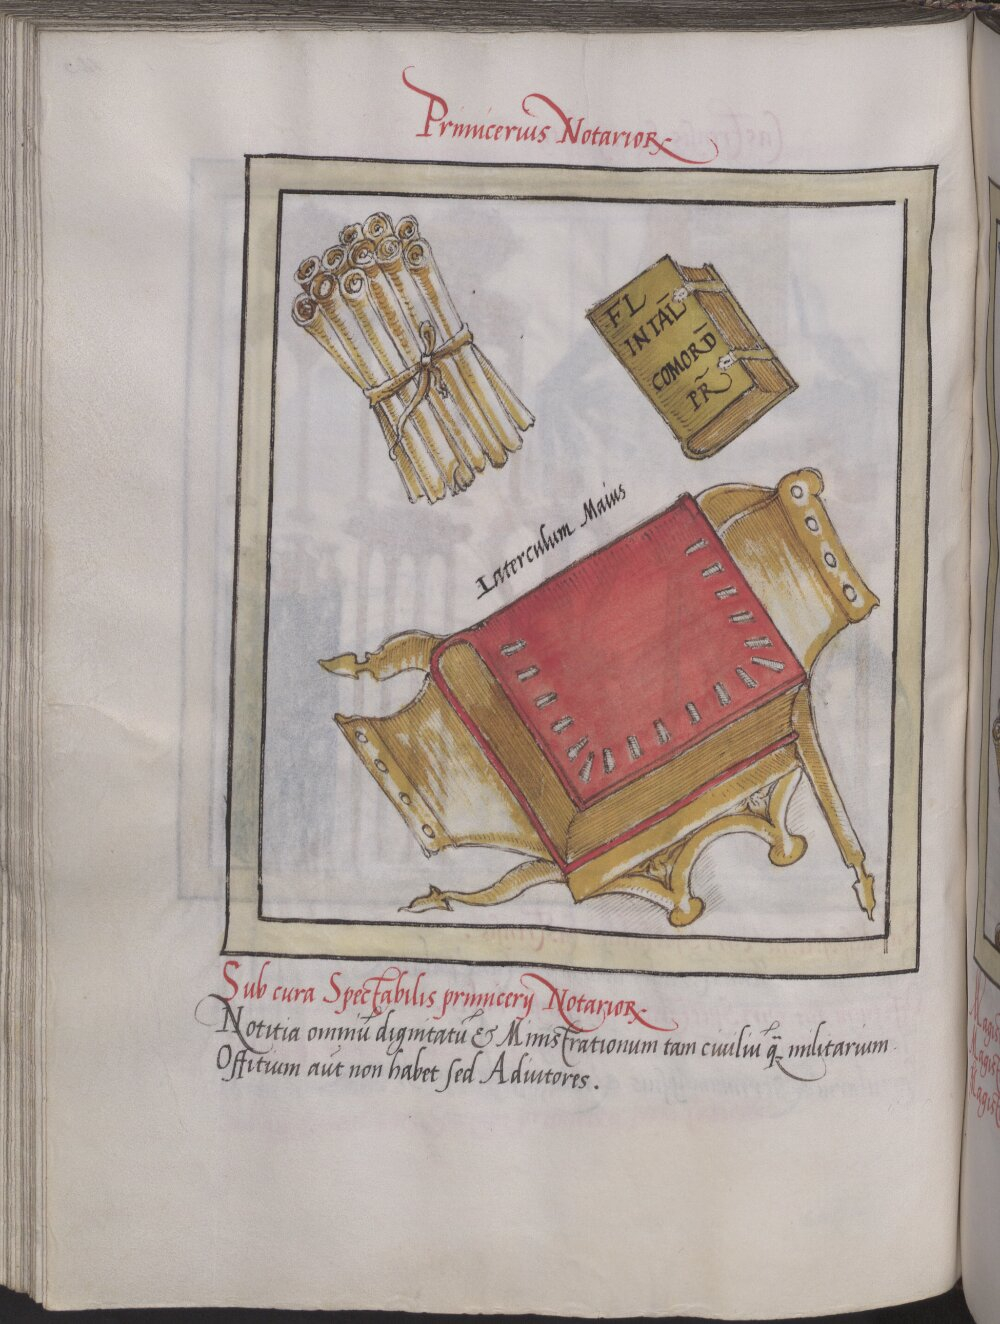 Primicerius Notarioꝝ
FL
INTAL̄
COMORD̄
PR̃
Laterculum Maius
Sub cura Spectabilis primicerij Notarioꝝ
Notitia omniũ dignitatũ & Ministrationum tam ciuiliũ q̃ militarium
Offitium aũt non habet sed Adiutores.
Magis
Magist
Magist